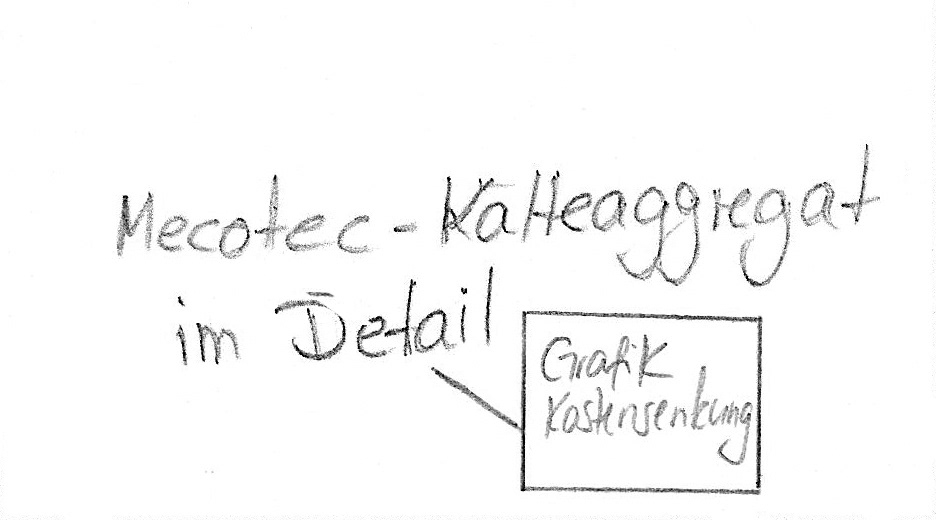 Mecotec-Kälteaggregat
im Detail
Grafik
Kostensenkung